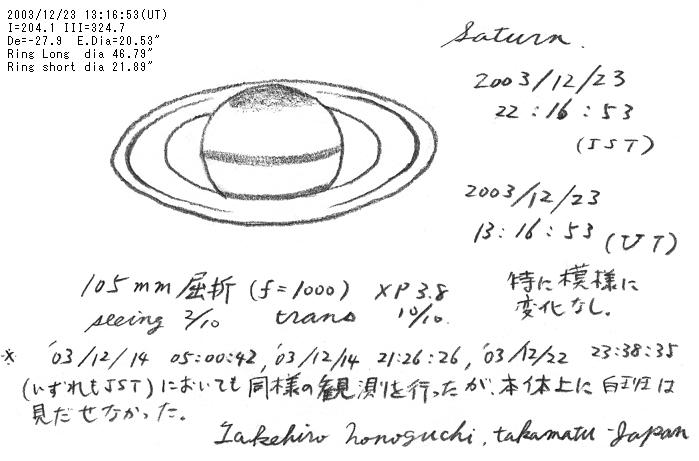 2003/12/23 13:16:53(UT)
I=204.1 III=324.7
De=-27.9 E.Dia=20.53"
Ring Long dia 46.79"
Ring short dia 21.89"
Saturn.
2003/12/23
22:16:53
(JST)
2003/12/23
13:16:53 (UT)
105mm 屈折 (f=1000) XP3.8
seeing 2/10 trans 10/10.
特に模様に
変化なし。
※ '03/12/14 05:00:42, '03/12/14 21:26:26, '03/12/22 23:38:35
(いずれもJST)においても同様の観測を行ったが、本体上に白斑は
見だせなかった。
Takehiro Nonoguchi, takamatu-Japan